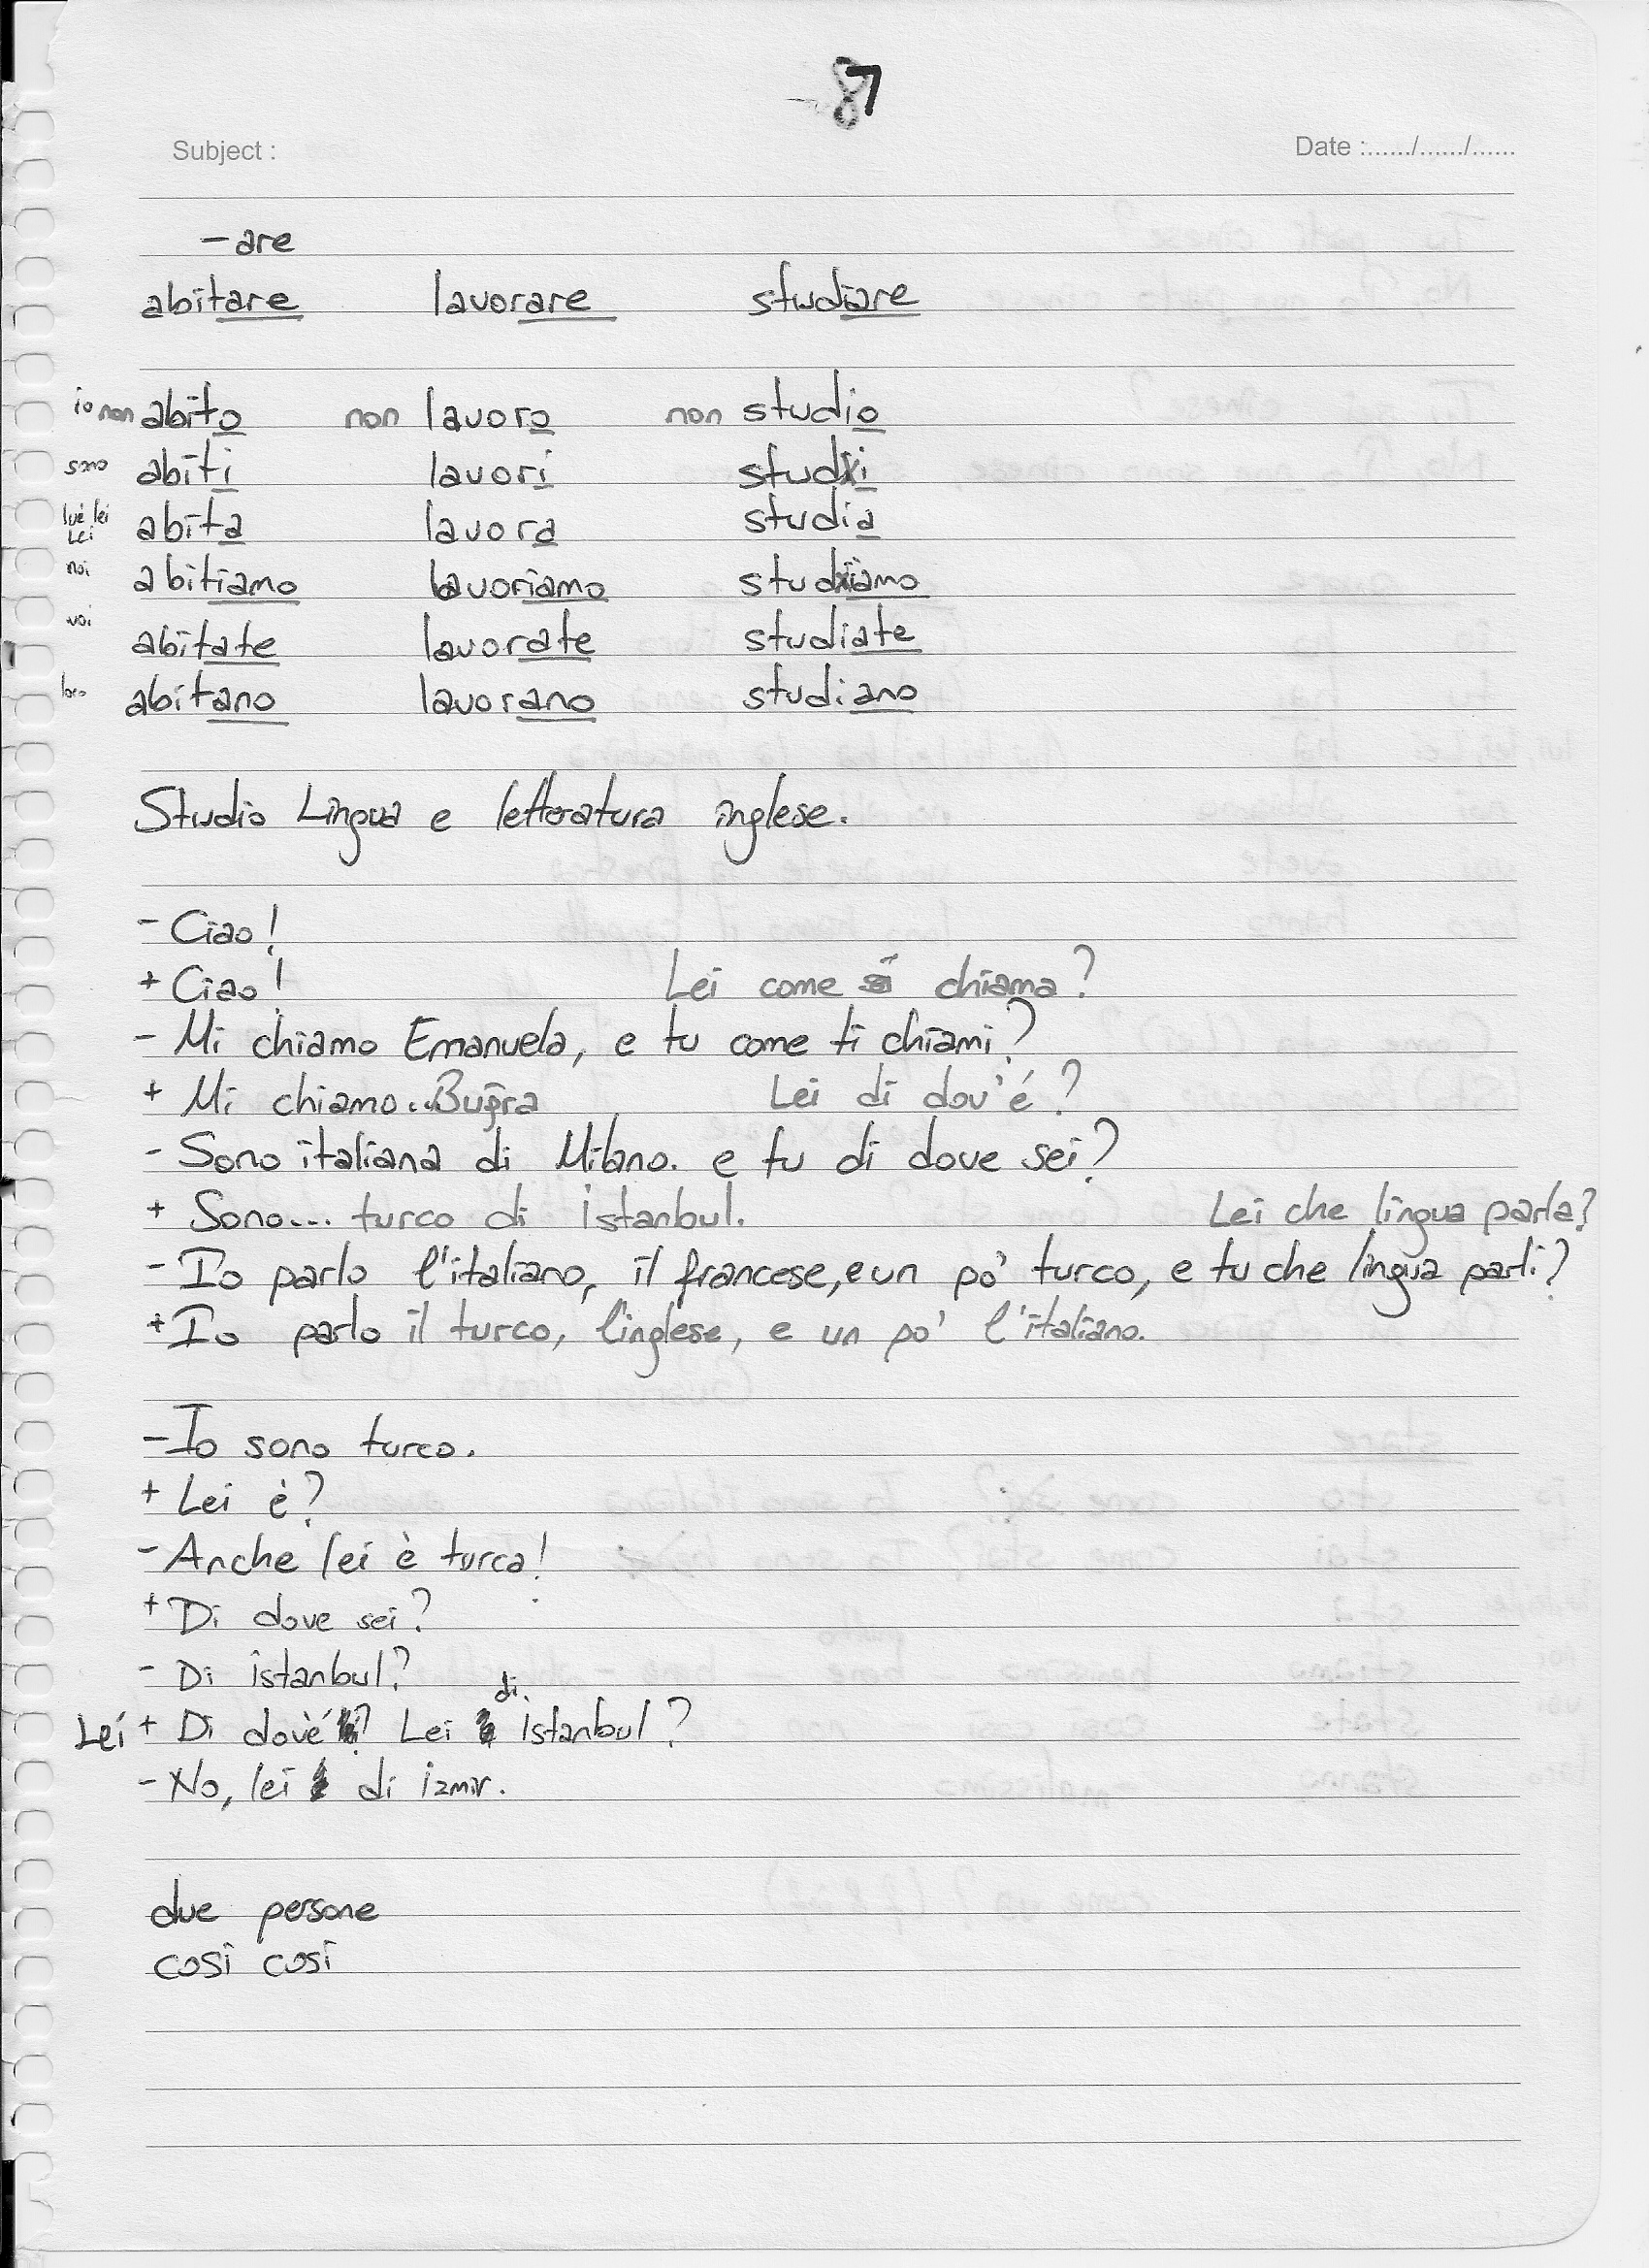 87
Subject :
Date :....../....../......
-are
abitare lavorare studiare
io non abito non lavoro non studio
sono abiti lavori studi
lui lei Lei abita lavora studia
noi abitiamo lavoriamo studiamo
voi abitate lavorate studiate
loro abitano lavorano studiano
Studio Lingua e letteratura inglese.
- Ciao!
+ Ciao! Lei come si chiama?
- Mi chiamo Emanuela, e tu come ti chiami?
+ Mi chiamo...Buğra Lei di dov'é?
- Sono italiana di Milano. e tu di dove sei?
+ Sono... turco di istanbul. Lei che lingua parla?
- Io parlo l'italiano, il francese, e un po' turco, e tu che lingua parli?
+ Io parlo il turco, l'inglese, e un po' l'italiano.
- Io sono turco.
+ Lei è?
- Anche lei è turca!
+ Di dove sei?
- Di istanbul?
Lei + Di dov'è? Lei di istanbul?
- No, lei di izmir.
due persone
cosi cosi